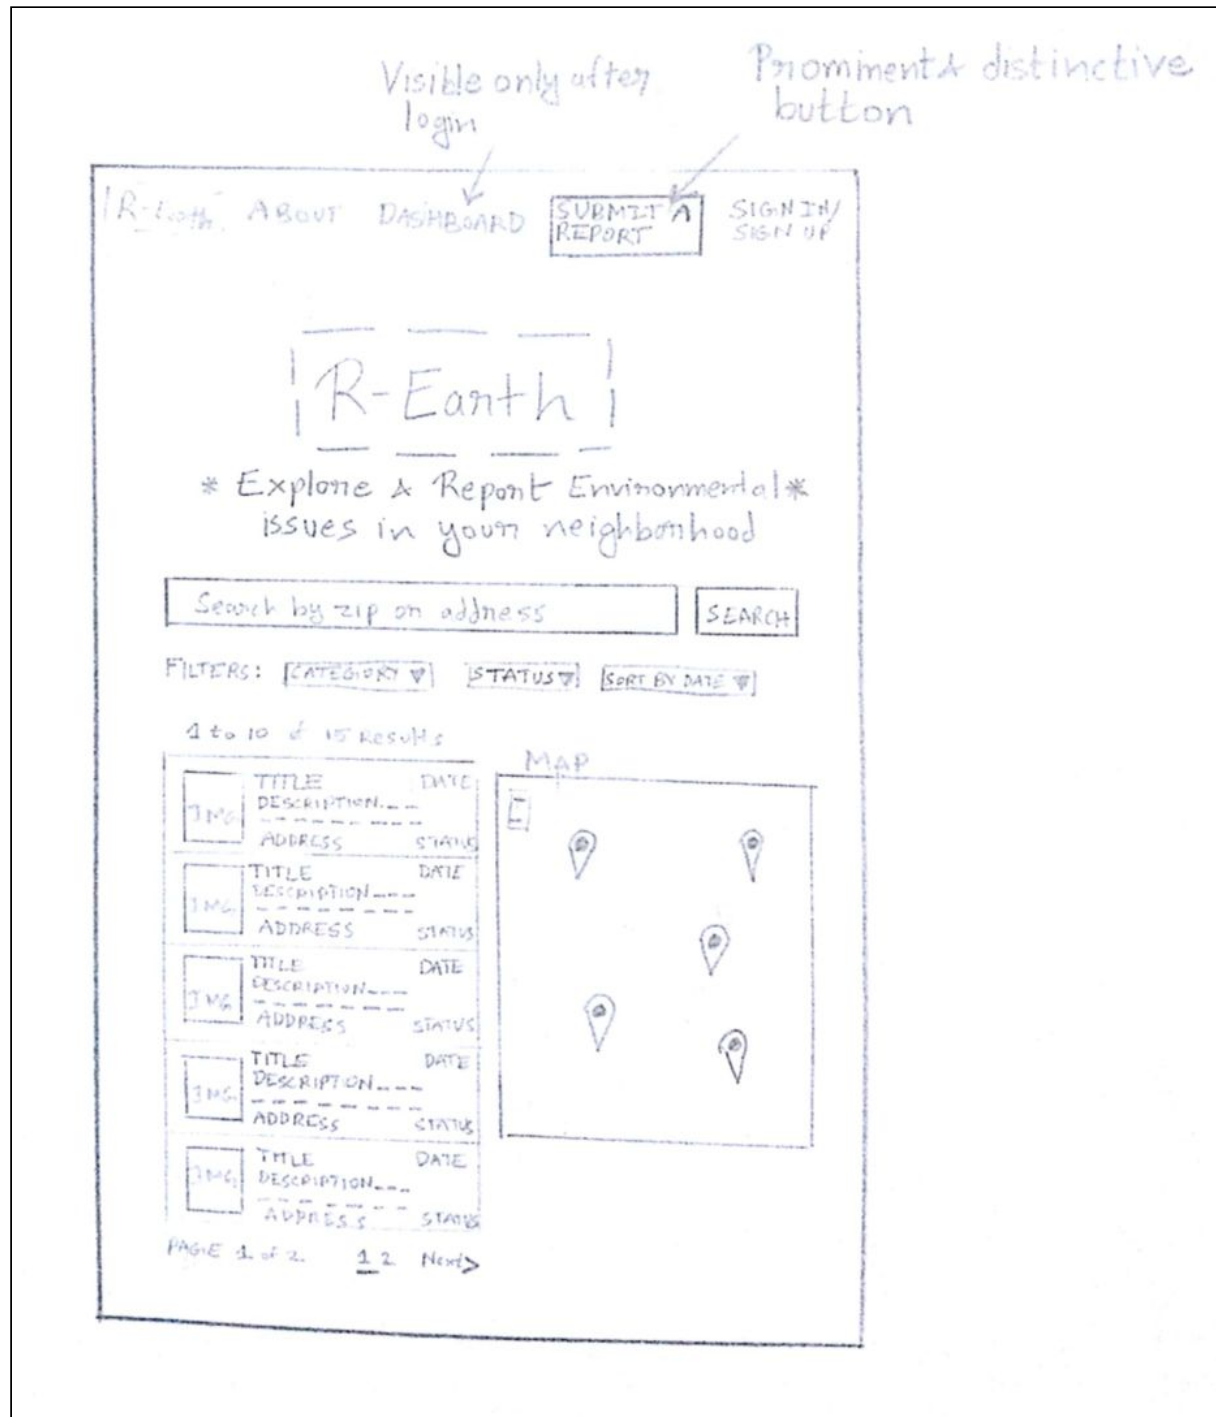 Visible only after
login
Prominent & distinctive
button
R-Earth
ABOUT
DASHBOARD
SUBMIT A
REPORT
SIGN IN/
SIGN UP
R-Earth
* Explore & Report Environmental *
issues in your neighborhood
Search by zip or address
SEARCH
FILTERS:
CATEGORY
STATUS
SORT BY DATE
1 to 10 of 15 Results
MAP
IMG
TITLE
DATE
DESCRIPTION
ADDRESS
STATUS
IMG
TITLE
DATE
DESCRIPTION
ADDRESS
STATUS
IMG
TITLE
DATE
DESCRIPTION
ADDRESS
STATUS
IMG
TITLE
DATE
DESCRIPTION
ADDRESS
STATUS
IMG
TITLE
DATE
DESCRIPTION
ADDRESS
STATUS
PAGE 1 of 2
1 2 Next>